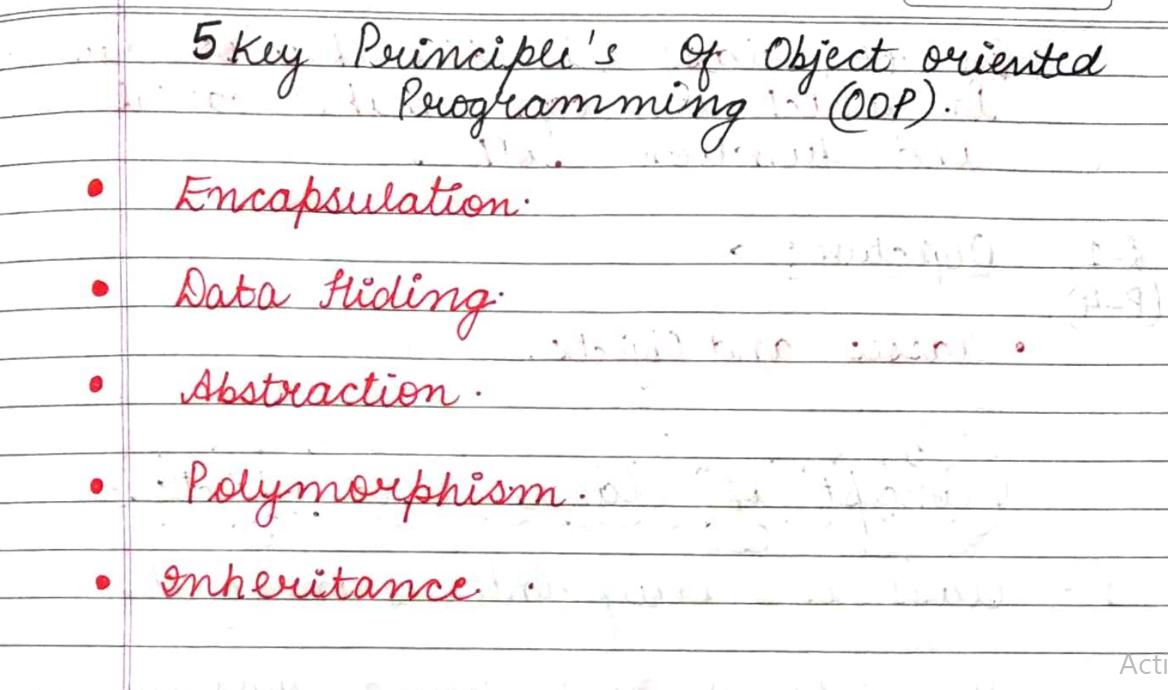 5 Key Principle's Of Object oriented
Programming (OOP).
• Encapsulation.
• Data Hiding.
• Abstraction.
• Polymorphism.
• Inheritance.
Acti